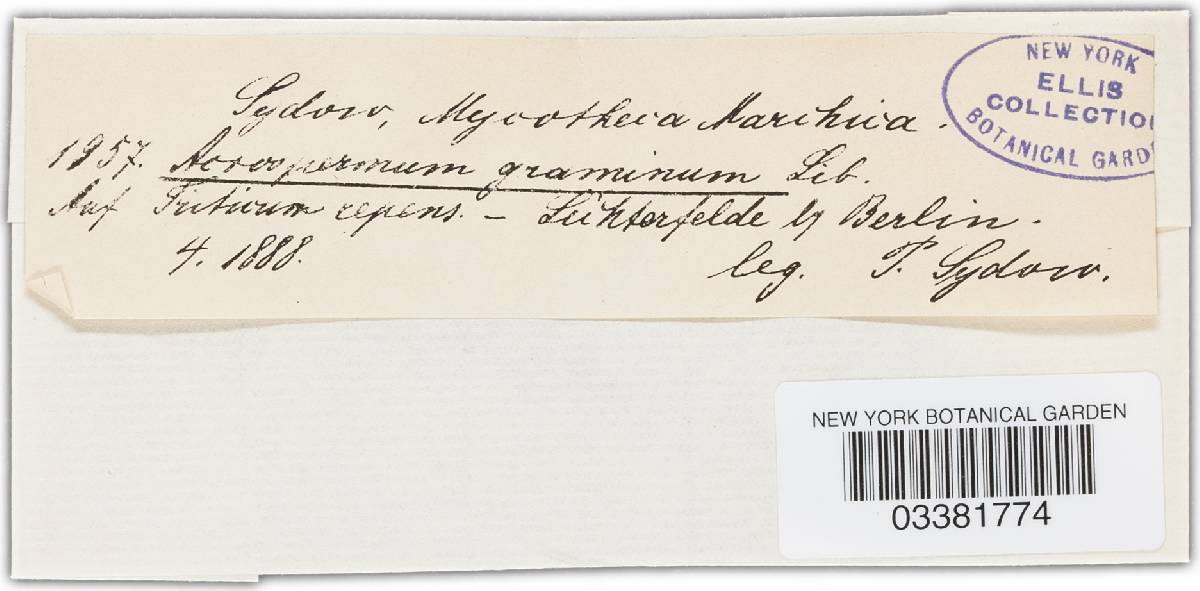 Sydow, Mycotheca Marchica.
1957. Acrospermum graminum Lib.
Auf Triticum repens. – Lichterfelde b/ Berlin.
4. 1888. leg. P. Sydow.
NEW YORK
ELLIS
COLLECTIO
BOTANICAL GARD
NEW YORK BOTANICAL GARDEN
03381774